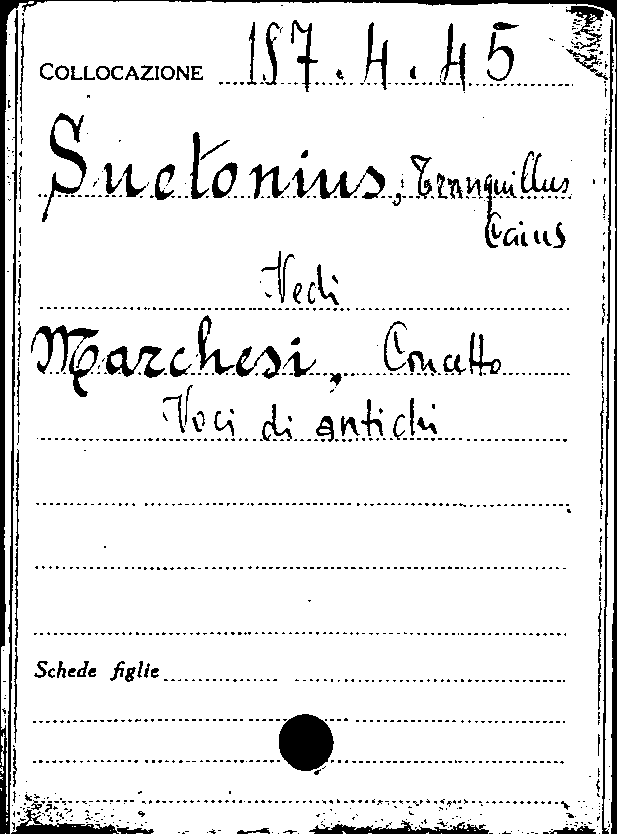 COLLOCAZIONE 187.4.45
Suetonius, Tranquillus
Caius
Vedi
Marchesi, Concetto
Voci di antichi
Schede figlie